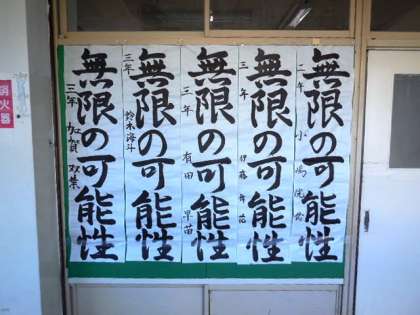 無限の可能性
二年
無限の可能性
三年 伊藤 舞花
無限の可能性
三年 有田 早苗
無限の可能性
三年 鈴木海斗
無限の可能性
三年 加賀 双葉
消火器